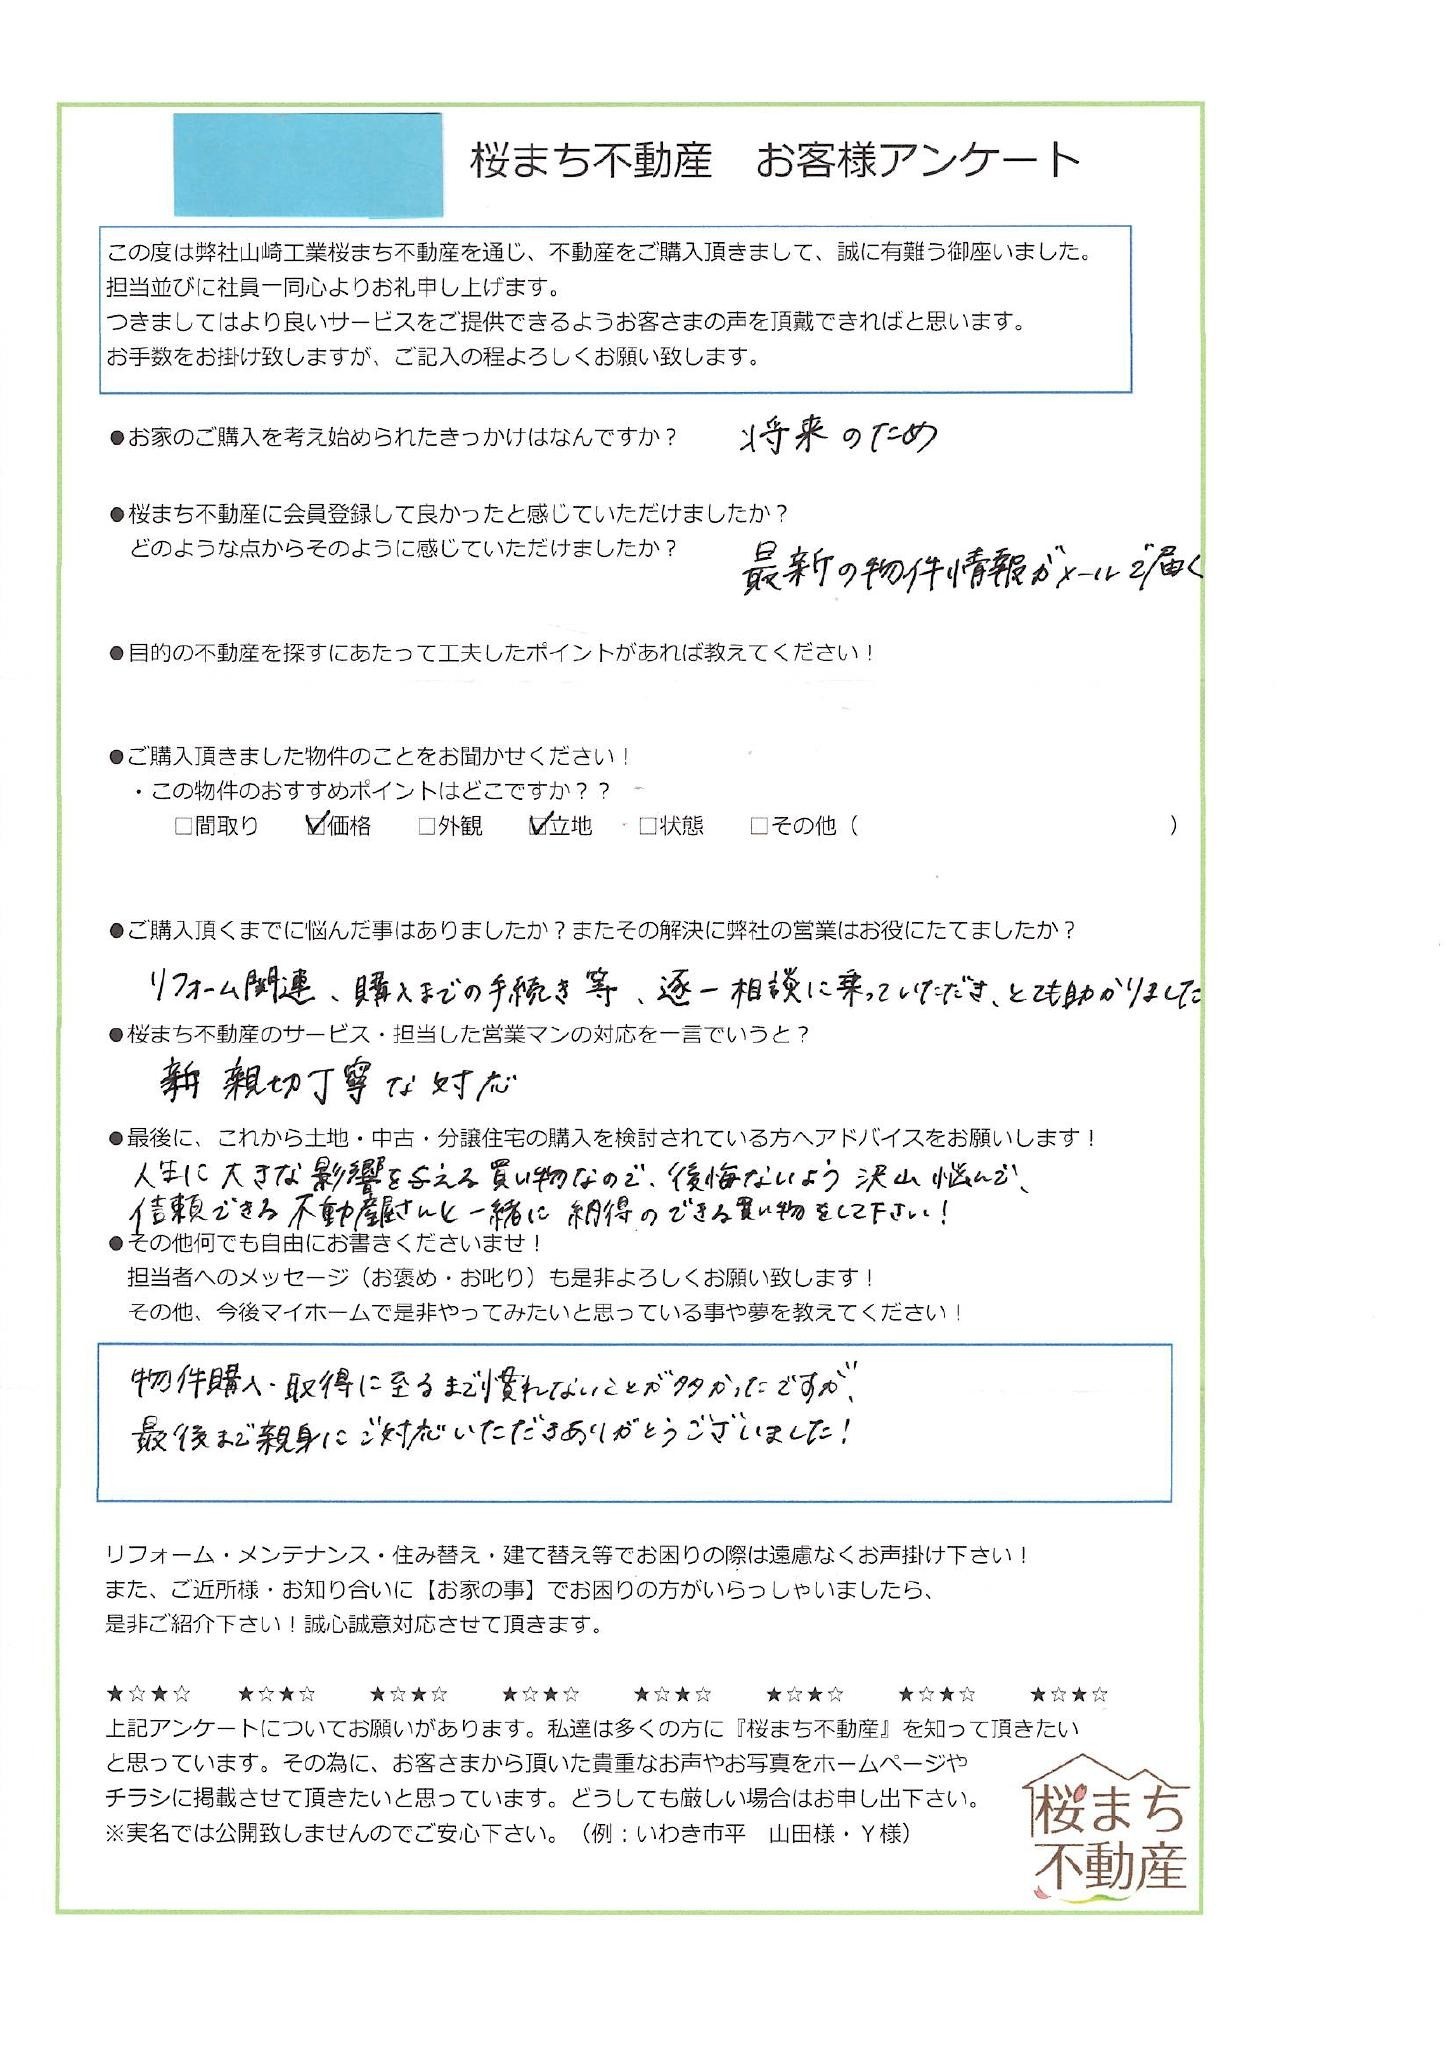 桜まち不動産　お客様アンケート
この度は弊社山崎工業桜まち不動産を通じ、不動産をご購入頂きまして、誠に有難う御座いました。
担当並びに社員一同心よりお礼申し上げます。
つきましてはより良いサービスをご提供できるようお客さまの声を頂戴できればと思います。
お手数をお掛け致しますが、ご記入の程よろしくお願い致します。
●お家のご購入を考え始められたきっかけはなんですか？　将来のため
●桜まち不動産に会員登録して良かったと感じていただけましたか？
どのような点からそのように感じていただけましたか？　最新の物件情報がメールで届く
●目的の不動産を探すにあたって工夫したポイントがあれば教えてください！
●ご購入頂きました物件のことをお聞かせください！
・この物件のおすすめポイントはどこですか？？
□間取り　☑価格　□外観　☑立地　□状態　□その他（　　　　　）
●ご購入頂くまでに悩んだ事はありましたか？またその解決に弊社の営業はお役にたてましたか？
リフォーム関連、購入までの手続き等、逐一相談に乗っていただき、とても助かりました
●桜まち不動産のサービス・担当した営業マンの対応を一言でいうと？
親切丁寧な対応
●最後に、これから土地・中古・分譲住宅の購入を検討されている方へアドバイスをお願いします！
人生に大きな影響を与える買い物なので、後悔ないよう沢山悩んで、
信頼できる不動産屋さんと一緒に納得のできる買い物をして下さい！
●その他何でも自由にお書きくださいませ！
担当者へのメッセージ（お褒め・お叱り）も是非よろしくお願い致します！
その他、今後マイホームで是非やってみたいと思っている事や夢を教えてください！
物件購入・取得に至るまで慣れないことが多かったですが、
最後まで親身にご対応いただきありがとうございました！
リフォーム・メンテナンス・住み替え・建て替え等でお困りの際は遠慮なくお声掛け下さい！
また、ご近所様・お知り合いに【お家の事】でお困りの方がいらっしゃいましたら、
是非ご紹介下さい！誠心誠意対応させて頂きます。
★☆★☆　★☆★☆　★☆★☆　★☆★☆　★☆★☆　★☆★☆　★☆★☆　★☆★☆
上記アンケートについてお願いがあります。私達は多くの方に『桜まち不動産』を知って頂きたい
と思っています。その為に、お客さまから頂いた貴重なお声やお写真をホームページや
チラシに掲載させて頂きたいと思っています。どうしても厳しい場合はお申し出下さい。
※実名では公開致しませんのでご安心下さい。（例：いわき市平　山田様・Ｙ様）
桜まち
不動産